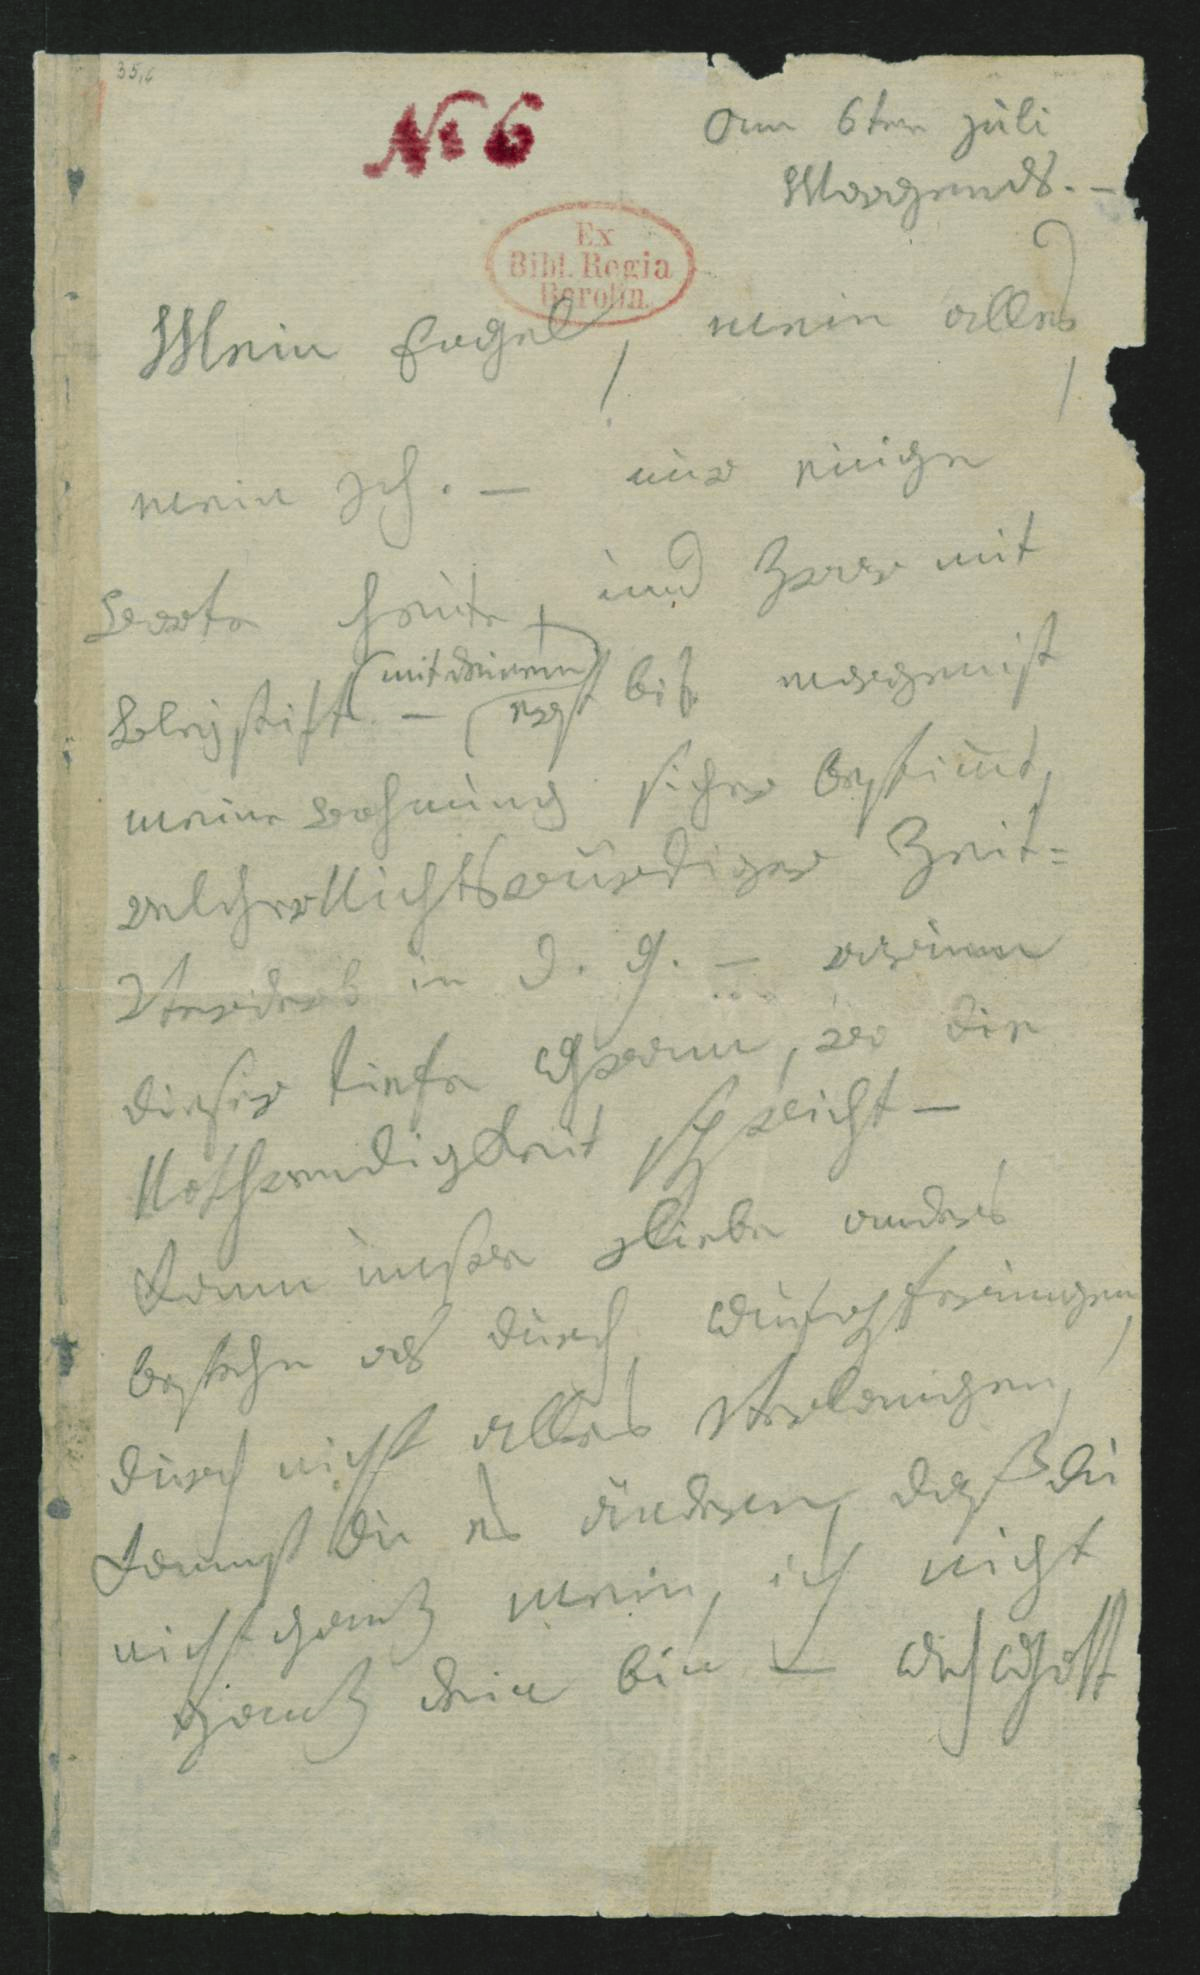 35,6
No 6
am 6ten juli
Morgends. –
Mein Engel, mein alles,
mein Ich. – nur einige
Worte heute, und zwar mit
Bleystift – (mit deinem)
erst bis morgen ist
meine wohnung sicher bestimmt,
welcher Nichtswürdiger Zeit=
Verderb in d. g. – warum
dieser tiefe Gram, wo die
Nothwendigkeit spricht –
Kann unsre Liebe anders
bestehn als durch Aufopferungen,
durch nicht alles Verlangen,
Kannst du es ändern, daß du
nicht ganz mein, ich nicht
ganz dein bin – Ach Gott
Ex
Bibl. Regia
Berolin.